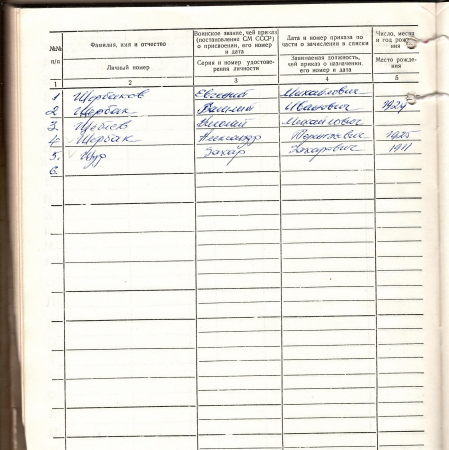 №№ п/п
Фамилия, имя и отчество
Личный номер
Воинское звание, чей приказ
(постановление СМ СССР)
о присвоении, его номер
и дата
Серия и номер удостове-
рения личности
Дата и номер приказа по
части о зачислении в списки
Занимаемая должность,
чей приказ о назначении,
его номер и дата
Число, месяц
и год рожде-
ния
Место рожде-
ния
1 2 3 4 5
1 Щербаков Евгений Михайлович
2 Щербак Василий Иванович 1924
3. Николай Михайлович
4. Щербак Александр 1925
5. Щур Захар Захарович 1911
6.